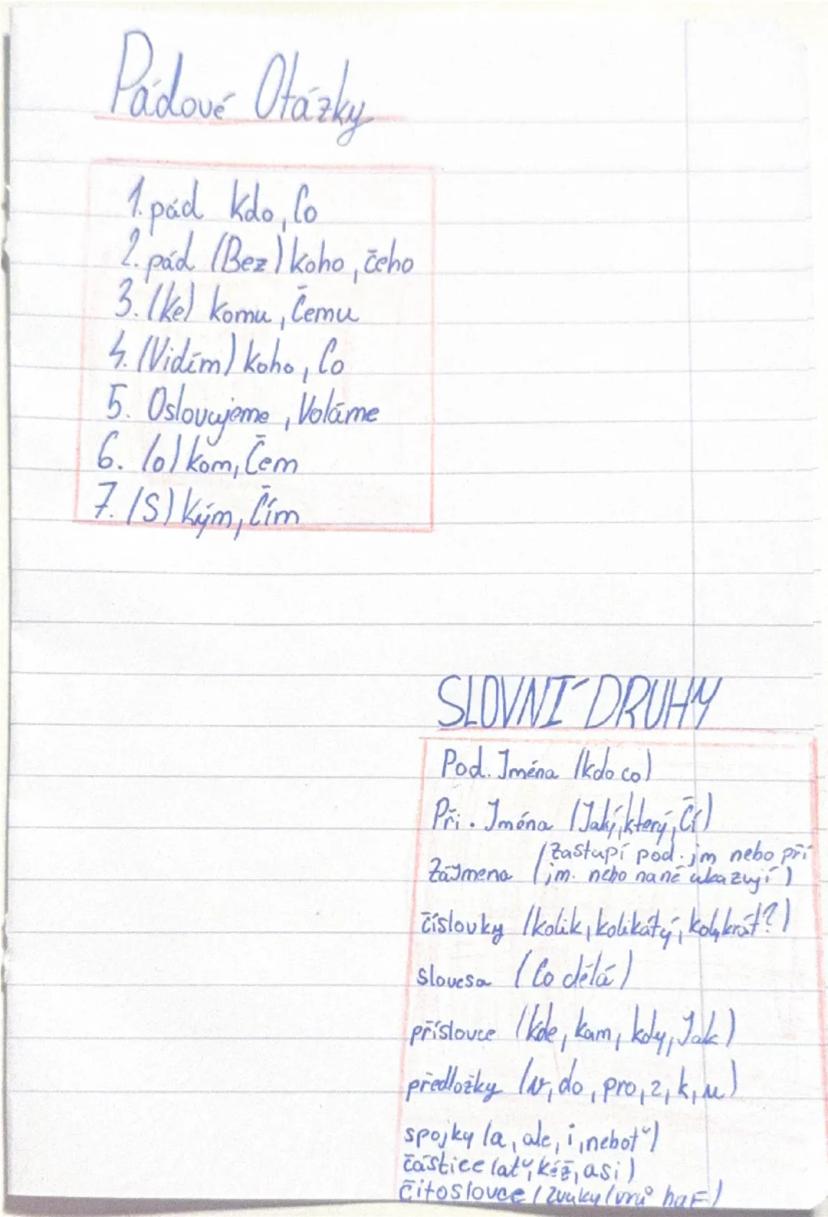 Pádové Otázky
1. pád kdo, Co
2. pád (Bez) koho, čeho
3. (ke) komu, Čemu
4. (Vidím) koho, Co
5. Oslovujeme, Voláme
6. (o) kom, Čem
7. (S) kým, Čím
SLOVNÍ DRUHY
Pod. Jména (kdo co)
Při. Jména (Jaký, který, Čí)
Zájmena (zastupí pod. jm nebo pří
jm. nebo nané ukazují)
číslovky (kolik, kolikátý, kolikrát?)
slovesa (Co dělá)
příslovce (kde, kam, kdy, Jak)
předložky (v, do, pro, z, k, u)
spojky (a, ale, i, neboť)
částice (ať, kéž, asi)
čitoslovce (zvuky (vrů haF)